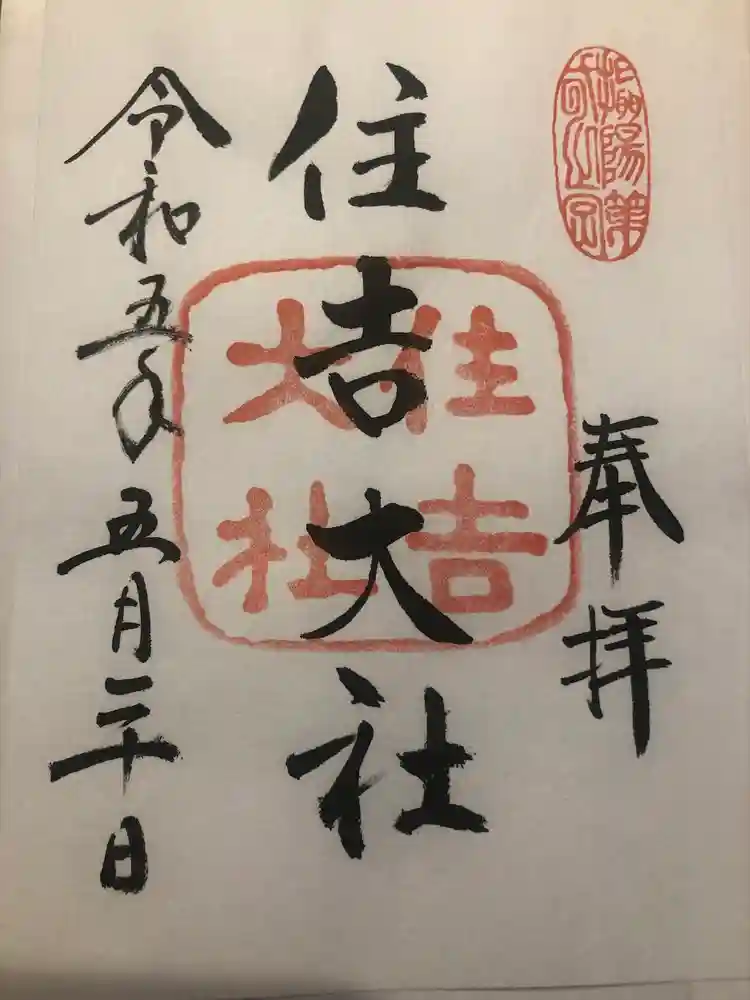 奉拝
住吉大社
令和五年五月二十日
住吉
大社